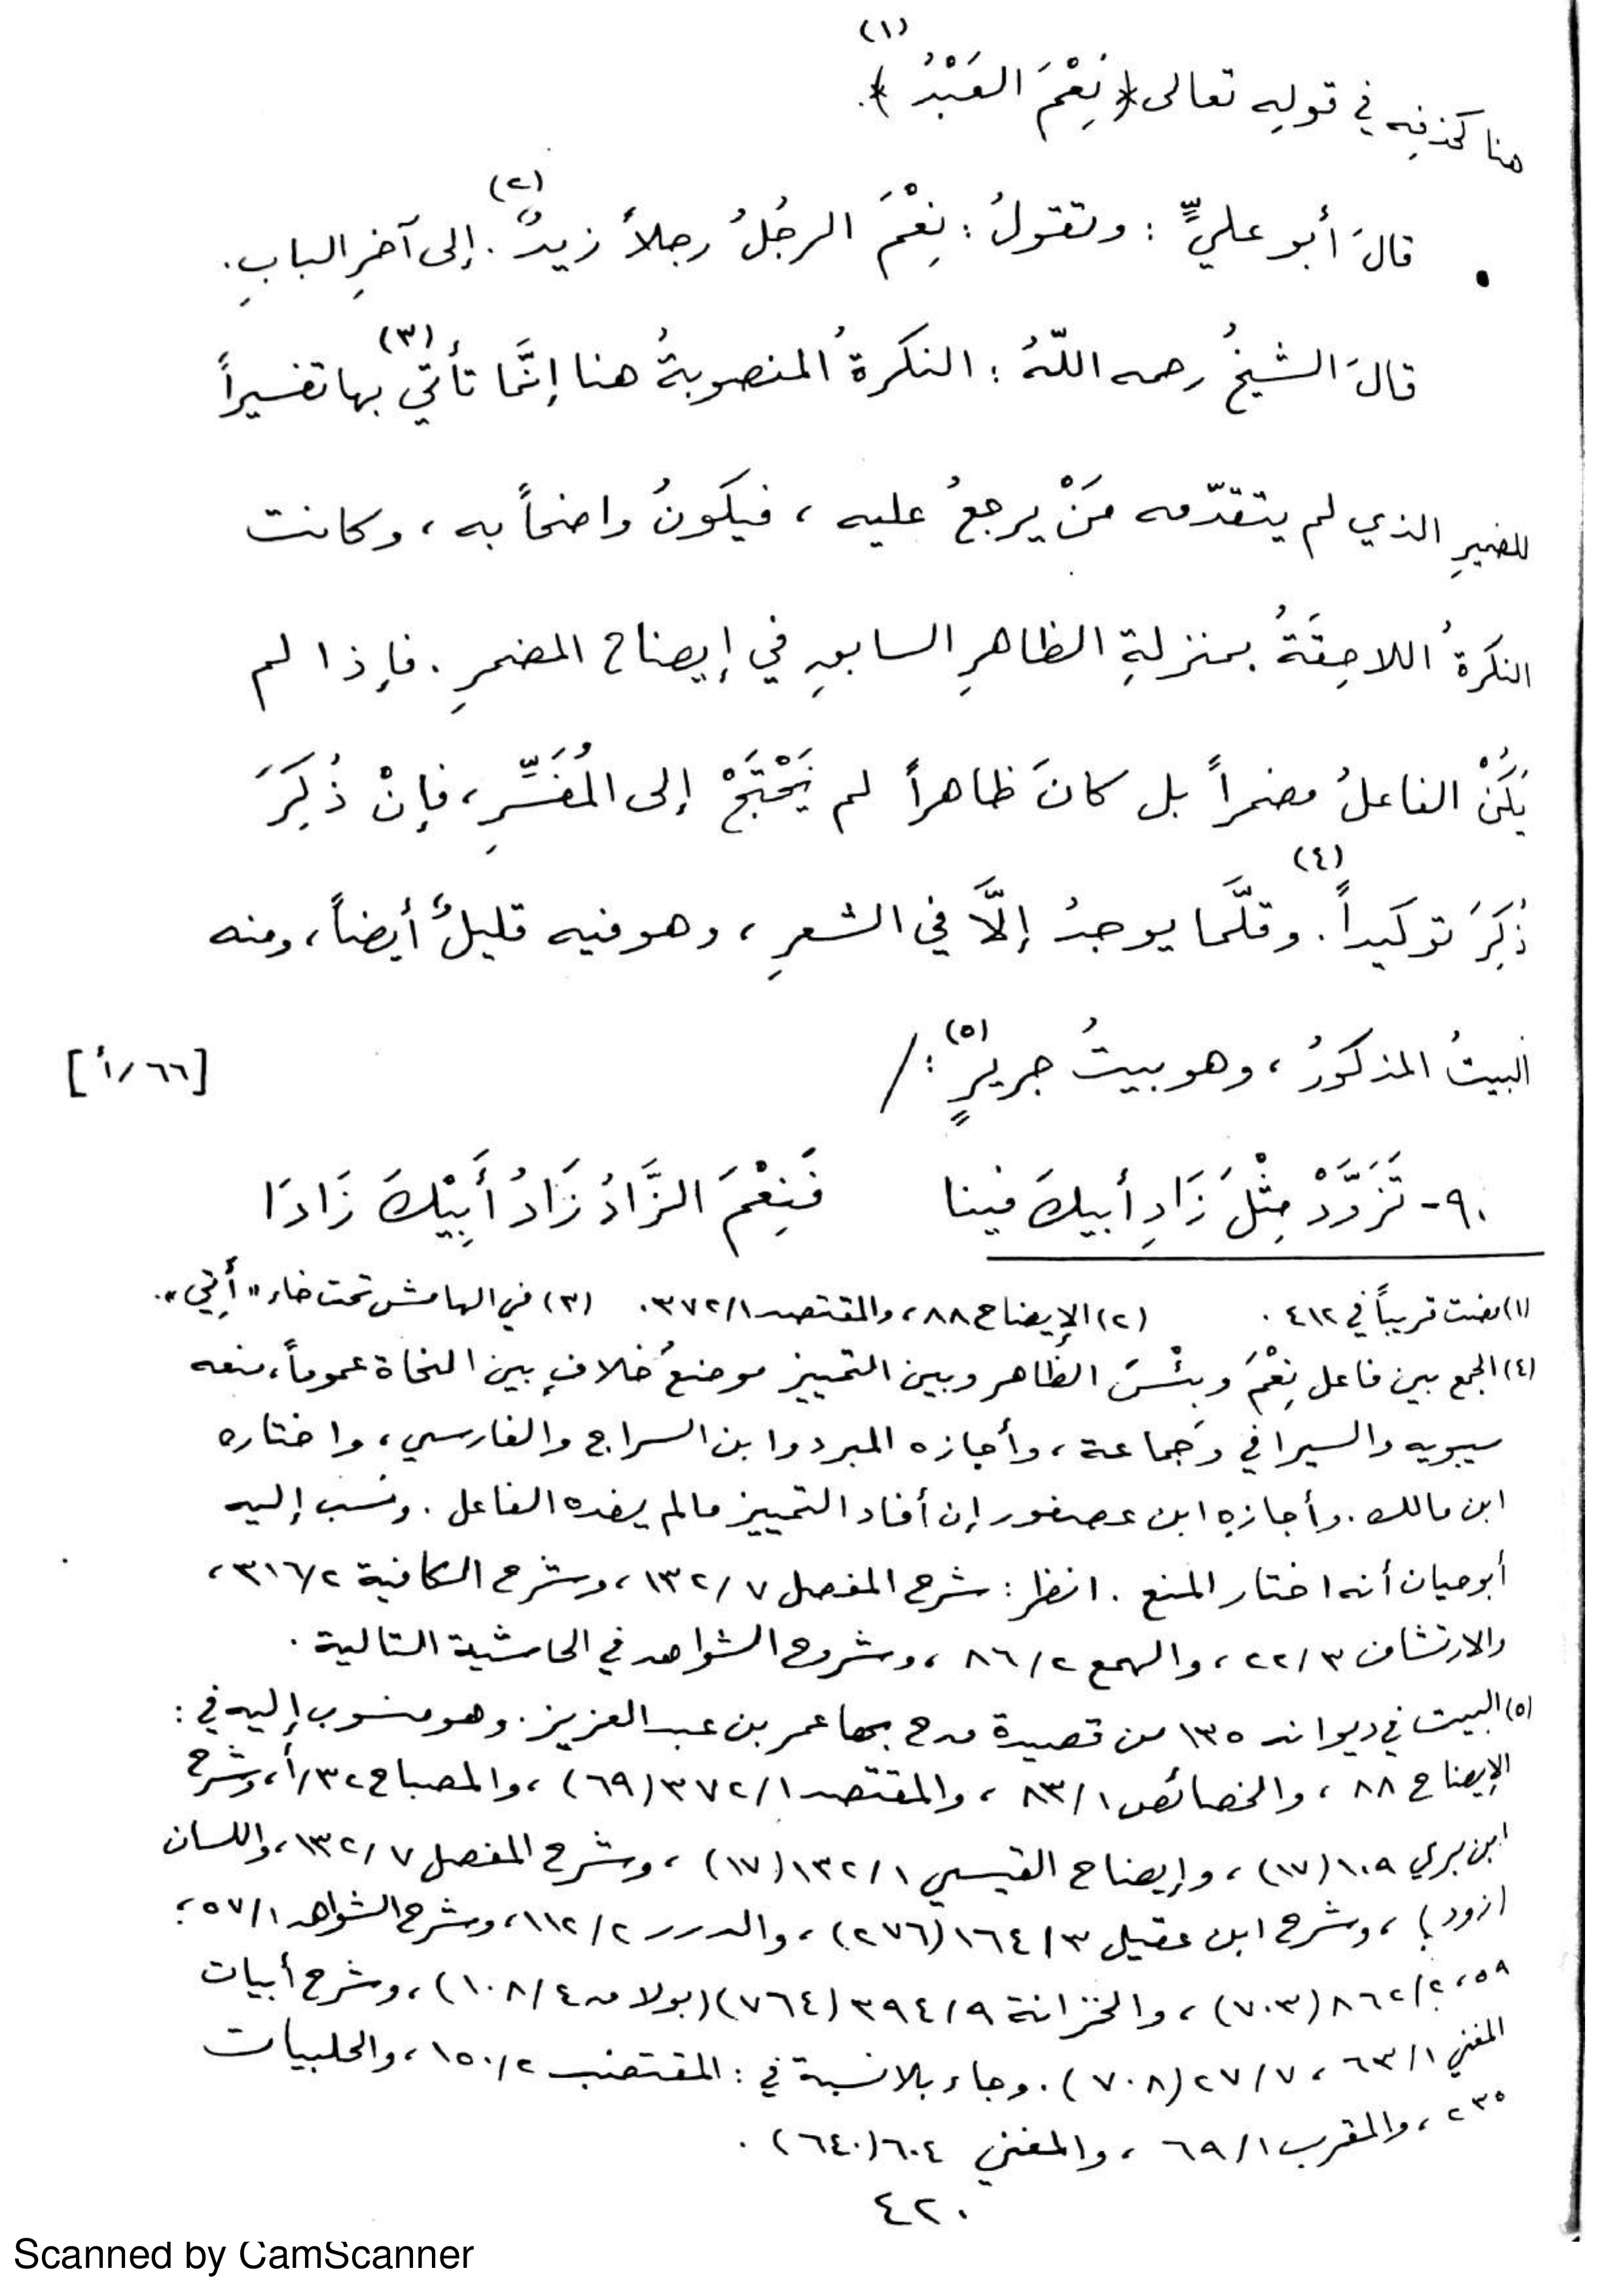 هنا كحذفِه في قولِه تعالى ﴿نِعْمَ العَبْدُ﴾(١).
• قالَ أبو عليٍّ : وتقولُ : نِعْمَ الرجُلُ رجلاً زيدٌ(٢). إلى آخرِ البابِ.
قالَ الشيخُ رحمه اللّهُ : النكرةُ المنصوبةُ هنا إنَّما تأتي(٣) بها تفسيراً
للضميرِ الذي لم يتقدّمه مَنْ يرجعُ عليه ، فيكونُ واضحاً به ، وكانت
النكرةُ اللاحِقَةُ بمنزلةِ الظاهرِ السابقِ في إيضاح المضمرِ . فإذا لم
يَكُنْ الفاعلُ مضمراً بل كانَ ظاهراً لم يَحْتَجْ إلى المُفَسِّرِ ، فإنْ ذُكِرَ
ذُكِرَ توكيداً(٤). وقلَّما يوجدُ إلَّا في الشعرِ ، وهو فيه قليلٌ أيضاً ، ومنه
البيتُ المذكورُ ، وهو بيتُ جريرٍ(٥) : / [٦٦/أ]
٩٠- تَزَوَّدْ مِثْلَ زَادِ أبيكَ فينا فَنِعْمَ الزَّادُ زَادُ أَبِيْكَ زَادَا
(١) مضت قريباً في ٤١٢ . (٢) الإيضاح ٨٨ ، والمقتصد ٣٧٢/١ . (٣) في الهامش تحت خاء "أُتِي".
(٤) الجمع بين فاعل نِعْمَ وبئْسَ الظاهر وبين التمييز موضعُ خلافٍ بين النحاة عموماً ، منعه
سيبويه والسيرافي وجماعة ، وأجازه المبرد وابن السراج والفارسي ، واختاره
ابن مالك . وأجازه ابن عصفور إن أفاد التمييز مالم يفده الفاعل . ونسب إليه
أبوحيان أنه اختار المنع . انظر : شرح المفصل ١٣٢/٧ ، وشرح الكافية ٣١٦/٢ ،
والارتشاف ٢٢/٣ ، والهمع ٨٦/٢ ، وشروح الشواهد في الحاشية التالية .
(٥) البيت في ديوانه ١٣٥ من قصيدة مدح بها عمر بن عبد العزيز . وهو منسوب إليه في :
الإيضاح ٨٨ ، والخصائص ٨٣/١ ، والمقتصد ٣٧٢/١ (٦٩) ، والمصباح ٣٢/أ ، وشرح
ابن بري ١٠٩ (١٧) ، وإيضاح القيسي ١٣٢/١ (١٧) ، وشرح المفصل ١٣٢/٧ ، واللسان
(زود) ، وشرح ابن عقيل ١٦٤/٣ (٢٧٦) ، والدرر ١١٢/٢ ، وشرح الشواهد ٥٧/١ ؛
٥٩ ، ٨٦٢/٢ (٧٠٣) ، والخزانة ٣٩٤/٩ (٧٦٤) (بولاق ١٠٨/٤) ، وشرح أبيات
المغني ٦٣/١ ، ٢٧/٧ (٧٠٨) . وجاء بلا نسبة في : المقتضب ١٥٠/٢ ، والحلبيات
٢٣٥ ، والمقرب ٦٩/١ ، والمغني ٦٠٤ (٦٤٠) .
٤٢٠
Scanned by CamScanner